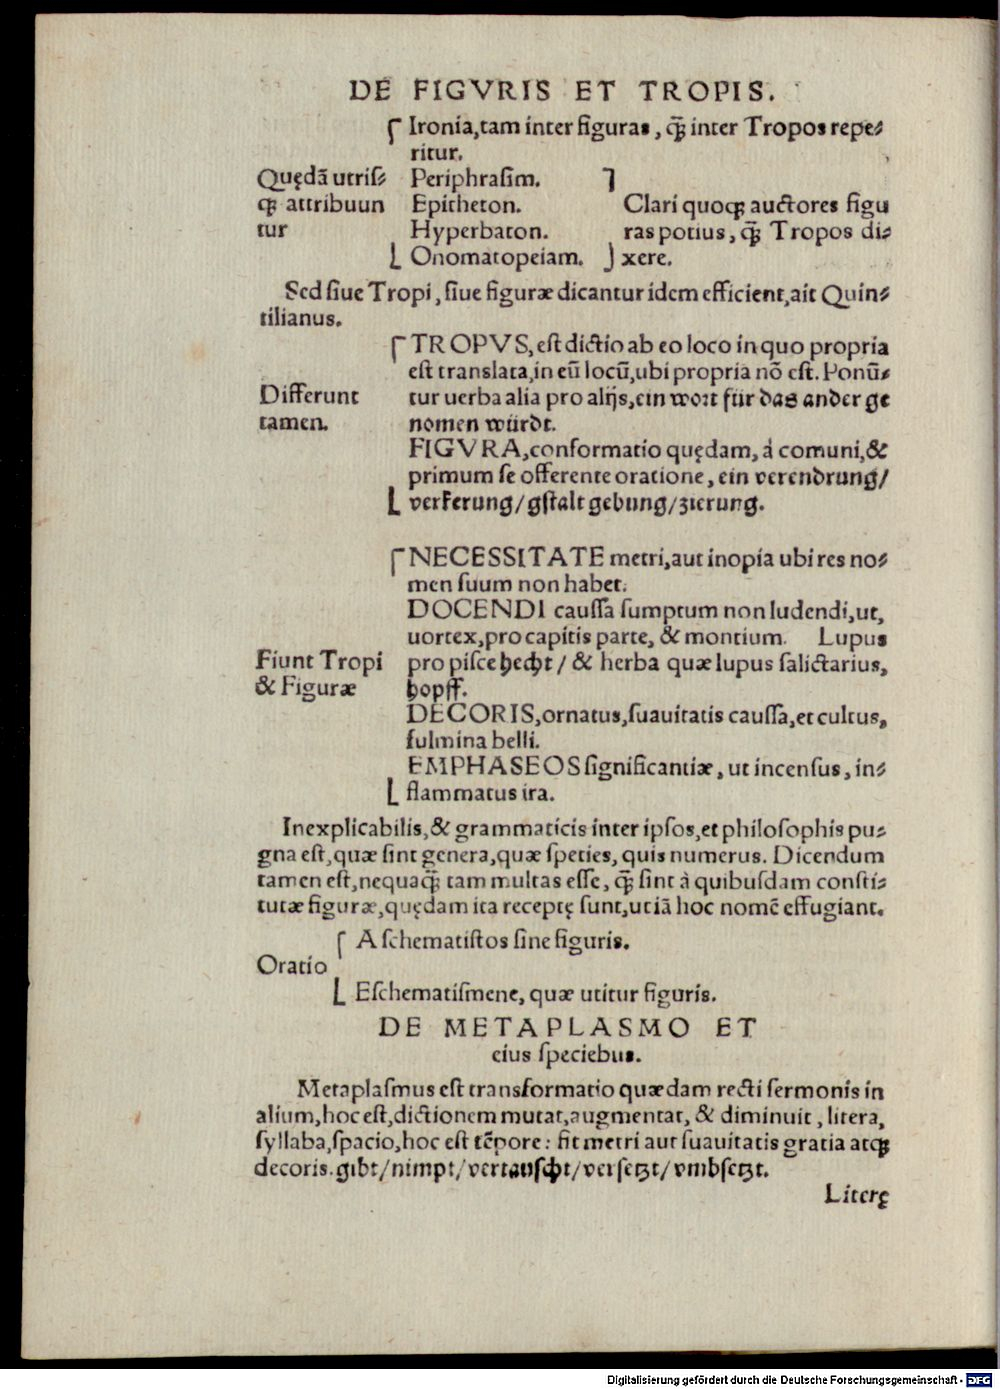 DE FIGVRIS ET TROPIS.
Ironia,tam inter figuras, q̃ inter Tropos repe⸗
ritur.
Quędã utriſ⸗ Periphraſim.
qꝫ attribuun Epitheton. Clari quoqꝫ auctores figu
tur Hyperbaton. ras potius, q̃ Tropos di⸗
Onomatopeiam. xere.
Sed ſiue Tropi, ſiue figuræ dicantur idem efficient,ait Quin⸗
tilianus.
TROPVS, eſt dictio ab eo loco in quo propria
eſt translata,in eũ locũ,ubi propria nõ eſt. Ponũ⸗
Differunt tur uerba alia pro alijs,ein wort für das ander ge
tamen. nomen würdt.
FIGVRA,conformatio quędam, á comuni,&
primum ſe offerente oratione, ein verendrung/
verkerung/gſtalt gebung/zierung.
NECESSITATE metri,aut inopia ubi res no⸗
men ſuum non habet.
DOCENDI cauſſa ſumptum non ludendi,ut,
uortex,pro capitis parte, & montium. Lupus
Fiunt Tropi pro piſce hecht/ & herba quæ lupus ſalictarius,
& Figuræ hopff.
DECORIS,ornatus,ſuauitatis cauſſa,et cultus,
fulmina belli.
EMPHASEOS ſignificantiæ, ut incenſus, in⸗
flammatus ira.
Inexplicabilis,& grammaticis inter ipſos,et philoſophis pu⸗
gna eſt,quæ ſint genera,quæ ſpeties, quis numerus. Dicendum
tamen eſt,nequaq̃ tam multas eſſe, q̃ ſint à quibuſdam conſti⸗
tutæ figuræ,quędam ita receptę ſunt,utiã hoc nomẽ effugiant.
Aſchematiſtos ſine figuris.
Oratio
Eſchematiſmene, quæ utitur figuris.
DE METAPLASMO ET
eius ſpeciebus.
Metaplaſmus eſt transformatio quædam recti ſermonis in
alium,hoc eſt,dictionem mutat,augmentat, & diminuit, litera,
ſyllaba,ſpacio,hoc eſt tẽpore: fit metri aut ſuauitatis gratia atqꝫ
decoris.gibt/nimpt/vertauſcht/verſetzt/vmbſetzt.
Literę
Digitalisierung gefördert durch die Deutsche Forschungsgemeinschaft - DFG